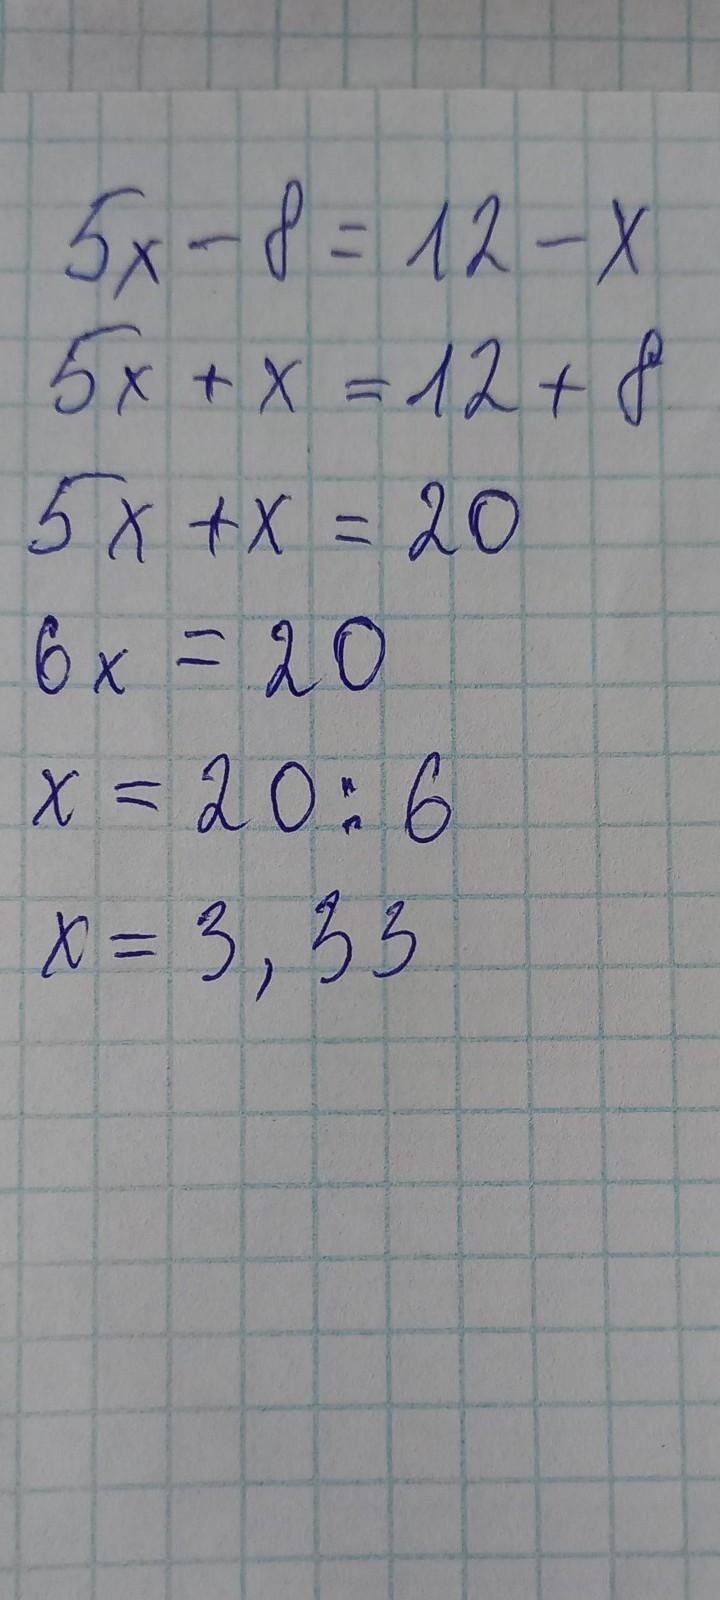 5x - 8 = 12 - x
5x + x = 12 + 8
5x + x = 20
6x = 20
x = 20 : 6
x = 3,33